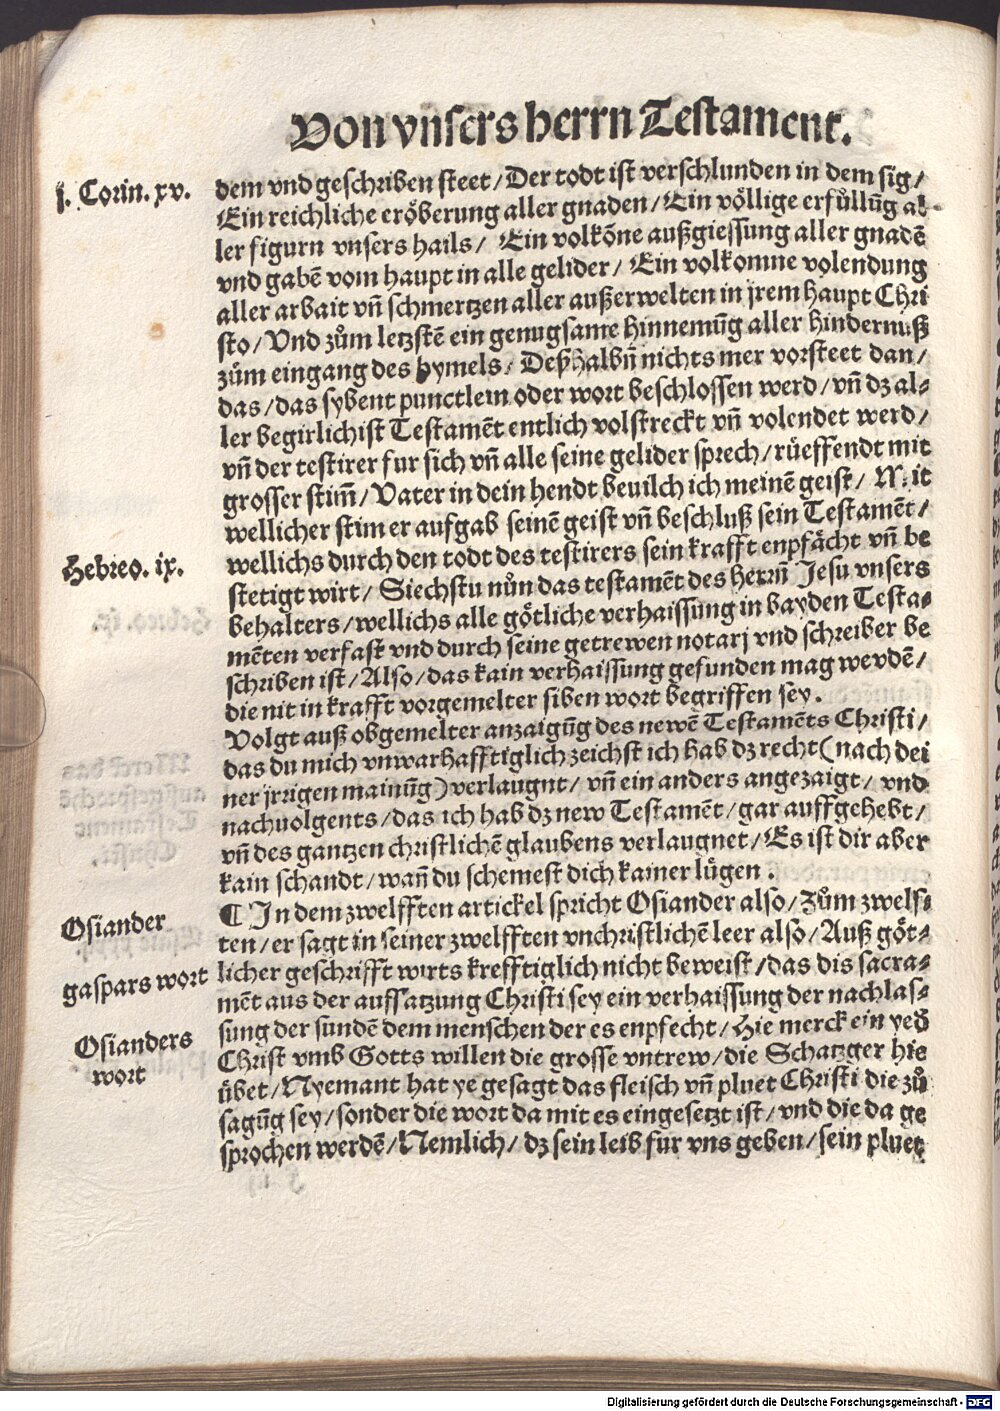 Von vnsers herrn Testament.
j. Corin. xv.
dem vnd geschriben steet / Der todt ist verschlunden in dem sig /
Ein reichliche eröberung aller gnaden / Ein völlige erfůllũg al-
ler figurn vnsers hails / Ein volkõne außgiessung aller gnadẽ
vnd gabẽ vom haupt in alle gelider / Ein volkomne volendung
aller arbait vñ schmertzen aller außerwelten in jrem haupt Chri
sto / Vnd zům letzstẽ ein genugsame hinnemũg aller hindernuß
zům eingang des hymels / Deßhalbñ nichts mer vorsteet dan /
das / das sybent punctlein oder wort beschlossen werd / vñ dz al-
ler begirlichist Testamẽt entlich volstreckt vñ volendet werd /
vñ der testirer fur sich vñ alle seine gelider sprech / rüeffendt mit
grosser stim̃ / Vater in dein hendt beuilch ich meinẽ geist / Mit
wellicher stim er aufgab seinẽ geist vñ beschluß sein Testamẽt /
Hebreo. ix.
wellichs durch den todt des testirers sein krafft enpfächt vñ be
stetigt wirt / Siechstu nůn das testamẽt des herrñ Jesu vnsers
behalters / wellichs alle götliche verhaissung in bayden Testa-
mẽten verfast vnd durch seine getrewen notarj vnd schreiber be
schriben ist / Also / das kain verhaissung gefunden mag werdẽ /
die nit in krafft vorgemelter siben wort begriffen sey.
Volgt auß obgemelter anzaigũg des newẽ Testamẽts Christi /
das du mich vnwarhafftiglich zeichst ich hab dz recht (nach dei
ner jrrigen mainũg) verlaugnt / vñ ein anders angezaigt / vnd
nachuolgents / das ich hab dz new Testamẽt / gar auffgehebt /
vñ des gantzen christlichẽ glaubens verlaugnet / Es ist dir aber
kain schandt / wañ du schemest dich kainer lügen.
Osiander
¶ In dem zwelfften artickel spricht Osiander also / Zům zwelf-
ten / er sagt in seiner zwelfften vnchristlichẽ leer also / Auß göt-
gaspars wort
licher geschrifft wirts krefftiglich nicht beweist / das dis sacra-
mẽt aus der auffsatzung Christi sey ein verhaissung der nachlas-
Osianders
wort
sung der sundẽ dem menschen der es enpfecht / Hie merck ein yed̃
Christ vmb Gotts willen die grosse vntrew / die Schatzger hie
übet / Nyemant hat ye gesagt das fleisch vñ pluet Christi die zů
sagũg sey / sonder die wort da mit es eingesetzt ist / vnd die da ge
sprochen werdẽ / Nemlich / dz sein leib fur vns geben / sein pluet
Digitalisierung gefördert durch die Deutsche Forschungsgemeinschaft - DFG